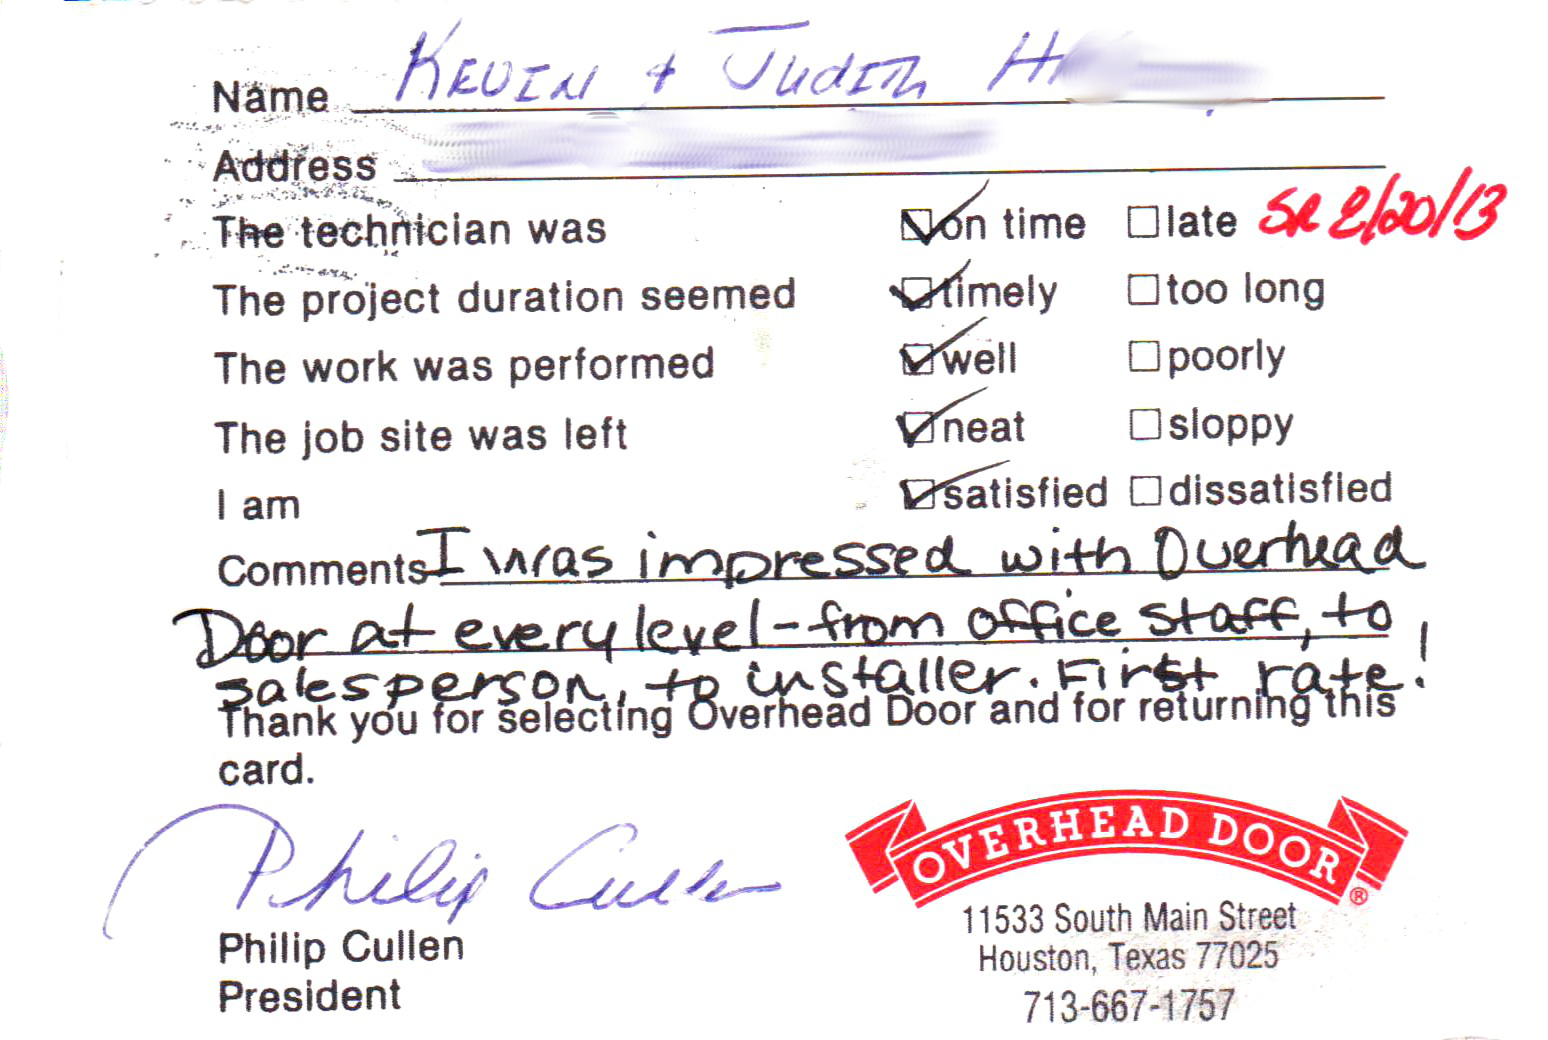 Name KEVIN + JUDITH
Address
The technician was ☑on time ☐late SR 2/20/13
The project duration seemed ☑timely ☐too long
The work was performed ☑well ☐poorly
The job site was left ☑neat ☐sloppy
I am ☑satisfied ☐dissatisfied
Comments I was impressed with Overhead
Door at every level - from office staff, to
salesperson, to installer. First rate!
Thank you for selecting Overhead Door and for returning this
card.
Philip Cullen
Philip Cullen
President
OVERHEAD DOOR®
11533 South Main Street
Houston, Texas 77025
713-667-1757